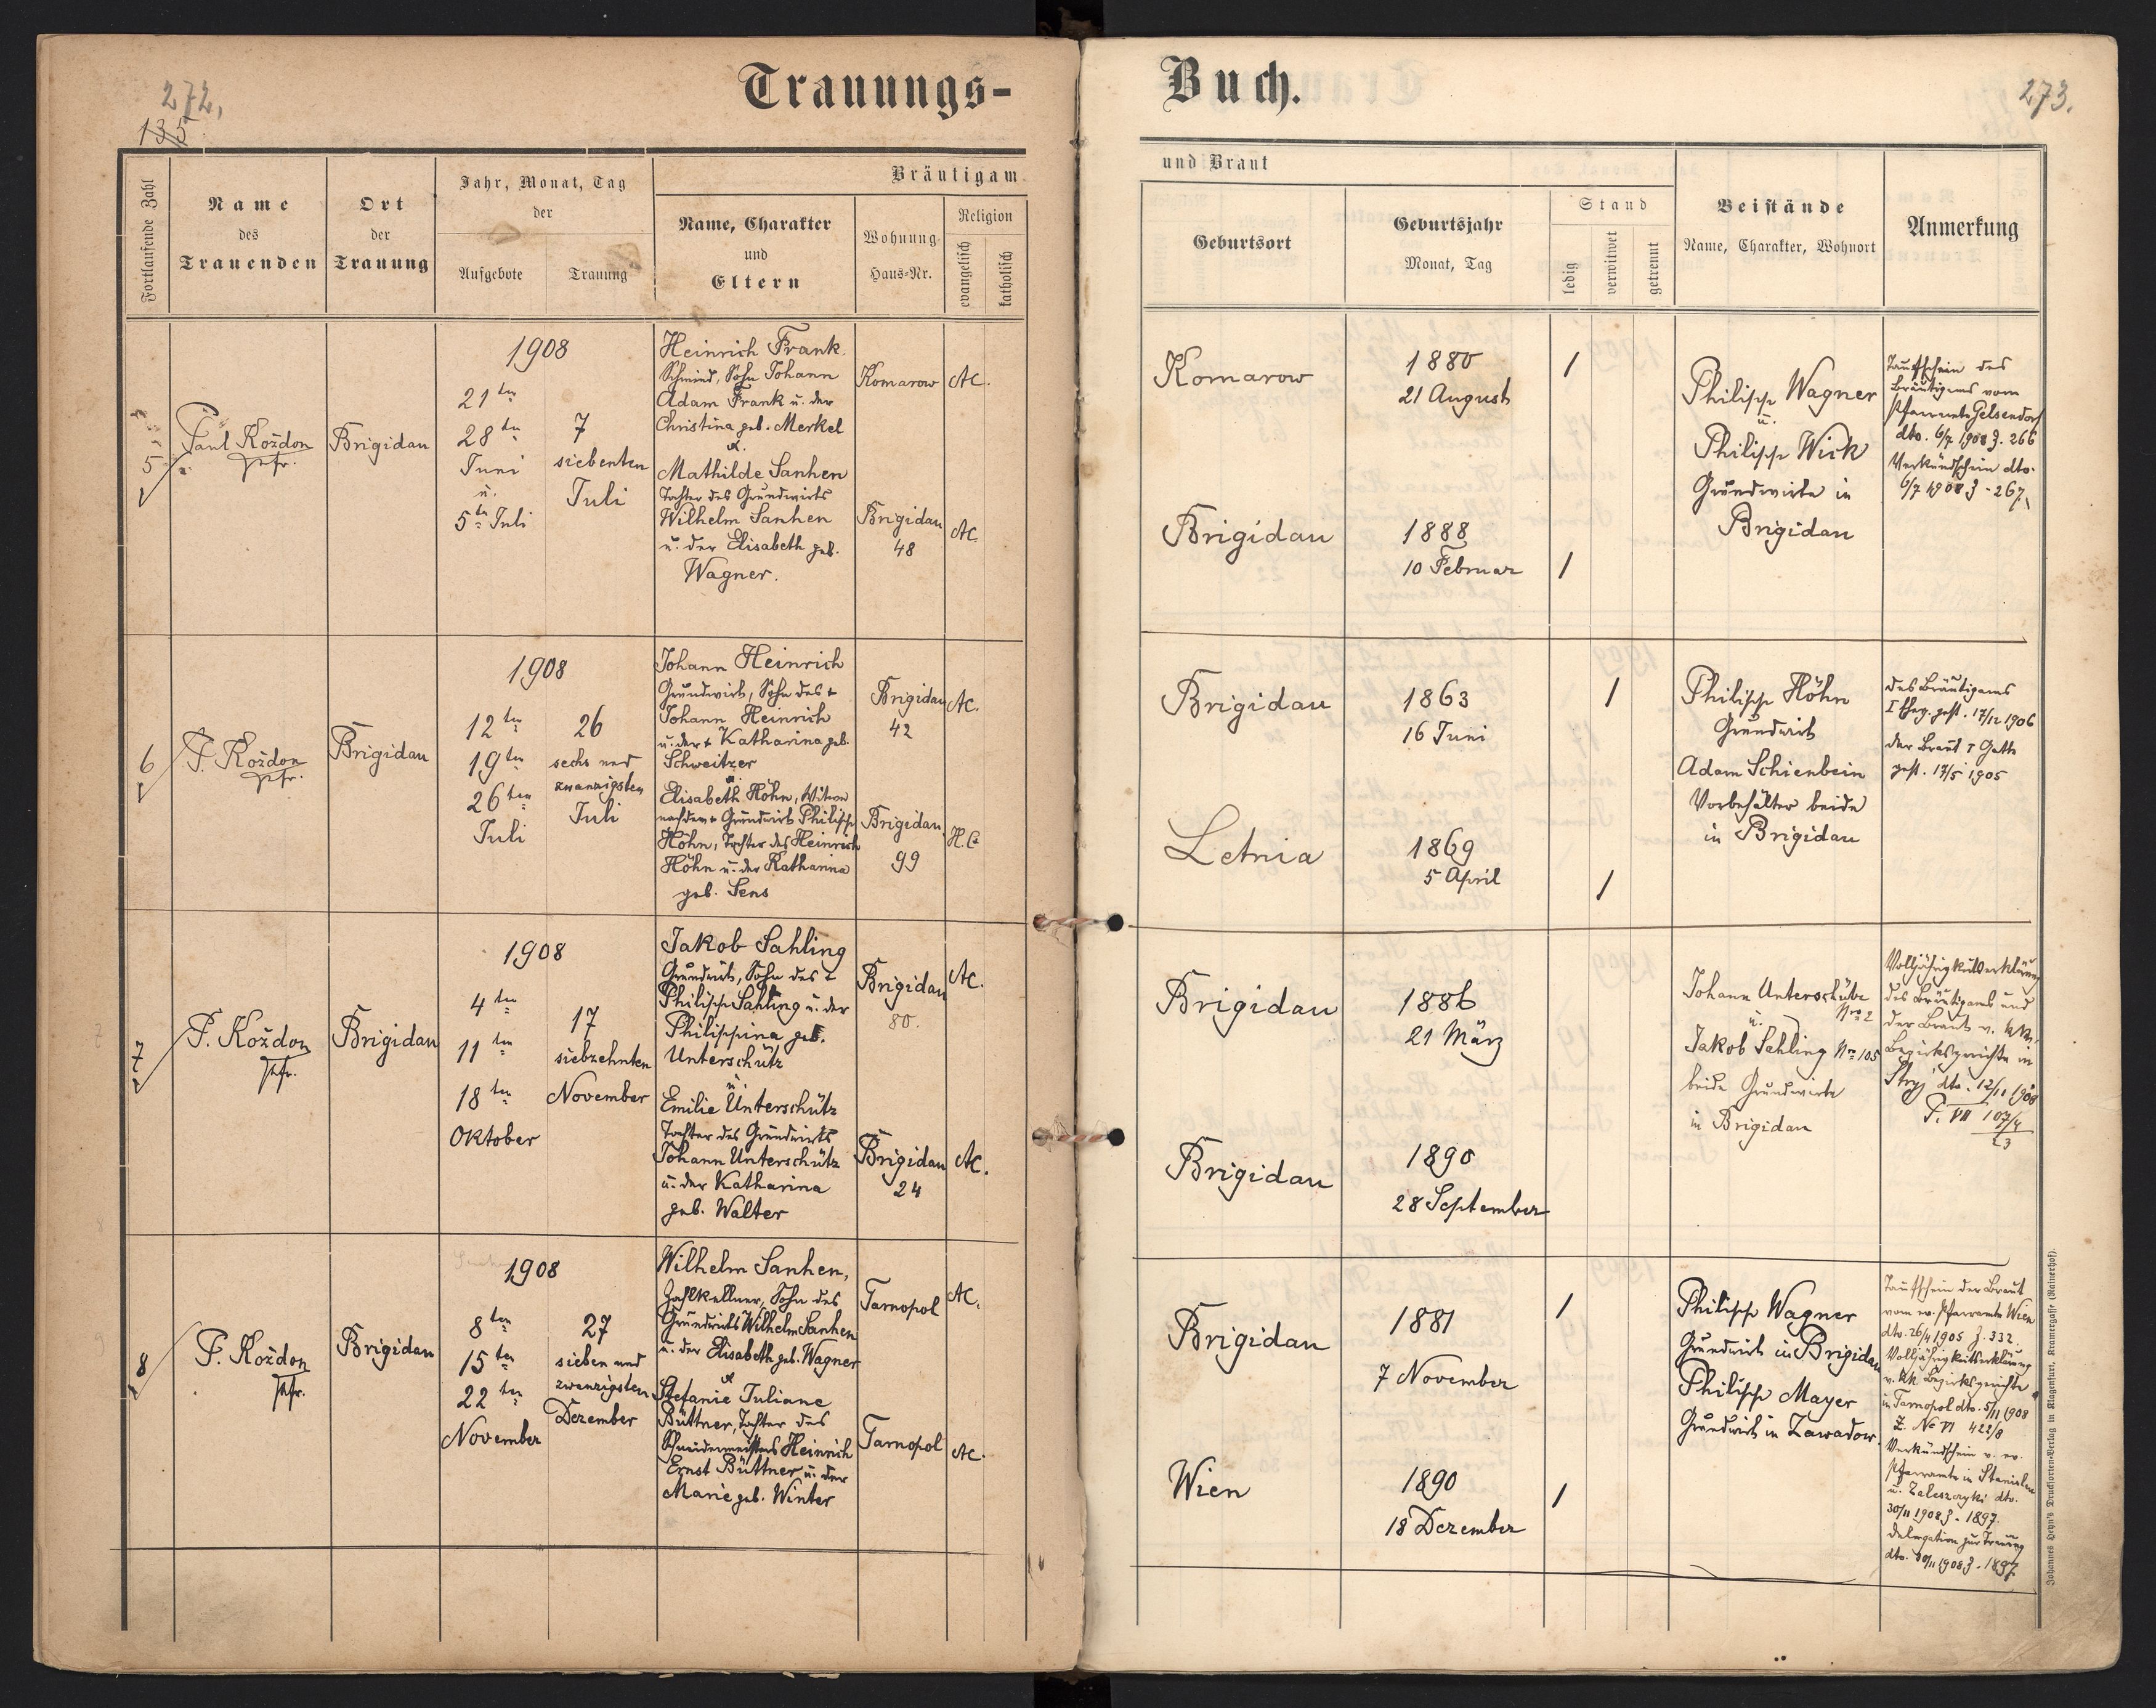 272,
135
Trauungs-
Fortlaufende Zahl
Name
des
Trauenden
Ort
der
Trauung
Jahr, Monat, Tag
der
Aufgebote
Trauung
Bräutigam
Name, Charakter
und
Eltern
Wohnung
Haus-Nr.
Religion
evangelisch
katholisch
5
Paul Kożdon
Pfr.
Brigidau
1908
21ten
28ten
Juni
u.
5ten Juli
7
siebenten
Juli
Heinrich Frank
Schmied, Sohn Johann
Adam Frank u. der
Christina geb. Merkel
&.
Mathilde Sanhen
Tochter des Grundwirts
Wilhelm Sanhen
u. der Elisabeth geb.
Wagner.
Komarow
AC.
Brigidau
48
AC.
6
P. Kożdon
Pfr.
Brigidau
1908
12ten
19ten
26ten
Juli
26
sechs und
zwanzigsten
Juli
Johann Heinrich
Grundwirt, Sohn des +
Johann Heinrich
u. der + Katharina geb.
Schweitzer
u.
Elisabeth Höhn, Witwe
nach dem + Grundwirt Philipp
Höhn, Tochter des Heinrich
Höhn u. der Katharina
geb. Sens
Brigidau
42
AC.
Brigidau
99
H.C.
7
P. Kożdon
Pfr.
Brigidau
1908
4ten
11ten
18ten
Oktober
17
siebzehnten
November
Jakob Sahling
Grundwirt, Sohn des +
Philipp Sahling u. der
Philippina geb.
Unterschütz
u.
Emilie Unterschütz
Tochter des Grundwirts
Johann Unterschütz
u. der Katharina
geb. Walter
Brigidau
80.
AC.
Brigidau
24
AC.
8
P. Kożdon
Pfr.
Brigidau
1908
8ten
15ten
22ten
November
27
sieben und
zwanzigsten
Dezember
Wilhelm Sanhen,
Zahlkellner, Sohn des
Grundwirts Wilhelm Sanhen
u. der Elisabeth geb. Wagner
&
Stefanie Juliane
Büttner, Tochter des
Schneidermeisters Heinrich
Ernst Büttner u. der
Marie geb. Winter
Tarnopol
AC.
Tarnopol
AC.
Buch.
273.
und Braut
Geburtsort
Geburtsjahr
Monat, Tag
Stand
ledig
verwitwet
getrennt
Beistände
Name, Charakter, Wohnort
Anmerkung
Komarow
1880
21 August
/
Brigidau
1888
10 Februar
/
Philipp Wagner
u.
Philipp Wick
Grundwirte in
Brigidau
Taufschein des
Bräutigams vom
Pfarramte Gelsendorf
dto. 6/7 1908 Z. 266
Verkündschein dto.
6/7 1908 Z - 267.
Brigidau
1863
16 Juni
/
Letnia
1869
5 April
/
Philipp Höhn
Grundwirt
Adam Schienbein
Vorbehälter beide
in Brigidau
des Bräutigams
I Eheg. gest. 17/12 1906
der Braut I Gatte
gest. 17/5 1905
Brigidau
1886
21 März
Brigidau
1890
28 September
Johann Unterschütz
Nro 2
u.
Jakob Sahling Nro 105
beide Grundwirte
in Brigidau
Volljährigkeitserklärung
des Bräutigams und
der Braut v. kk.
Bezirksgerichte in
Stryj dto. 12/11 1908
P. VII 107/4
23
Brigidau
1881
7 November
/
Wien
1890
18 Dezember
/
Philipp Wagner
Grundwirt in Brigidau
Philipp Mayer
Grundwirt in Zawadow.
Taufschein der Braut
vom ev. Pfarramte Wien
dto. 26/4 1905 Z. 332.
Volljährigkeitserklärung
v. kk Bezirksgerichte
in Tarnopol dto. 5/11 1908
Z. No VI 422/8
Verkündschein v. ev.
Pfarramte in Stanislau
u. Zaleszczyki dto.
30/11 1908 Z - 1897.
Delegation zur Trauung
dto. 30/11 1908 Z - 1897.
Johannes Heyn's Drucksorten-Verlag in Klagenfurt, Kramergasse (Rainerhof).